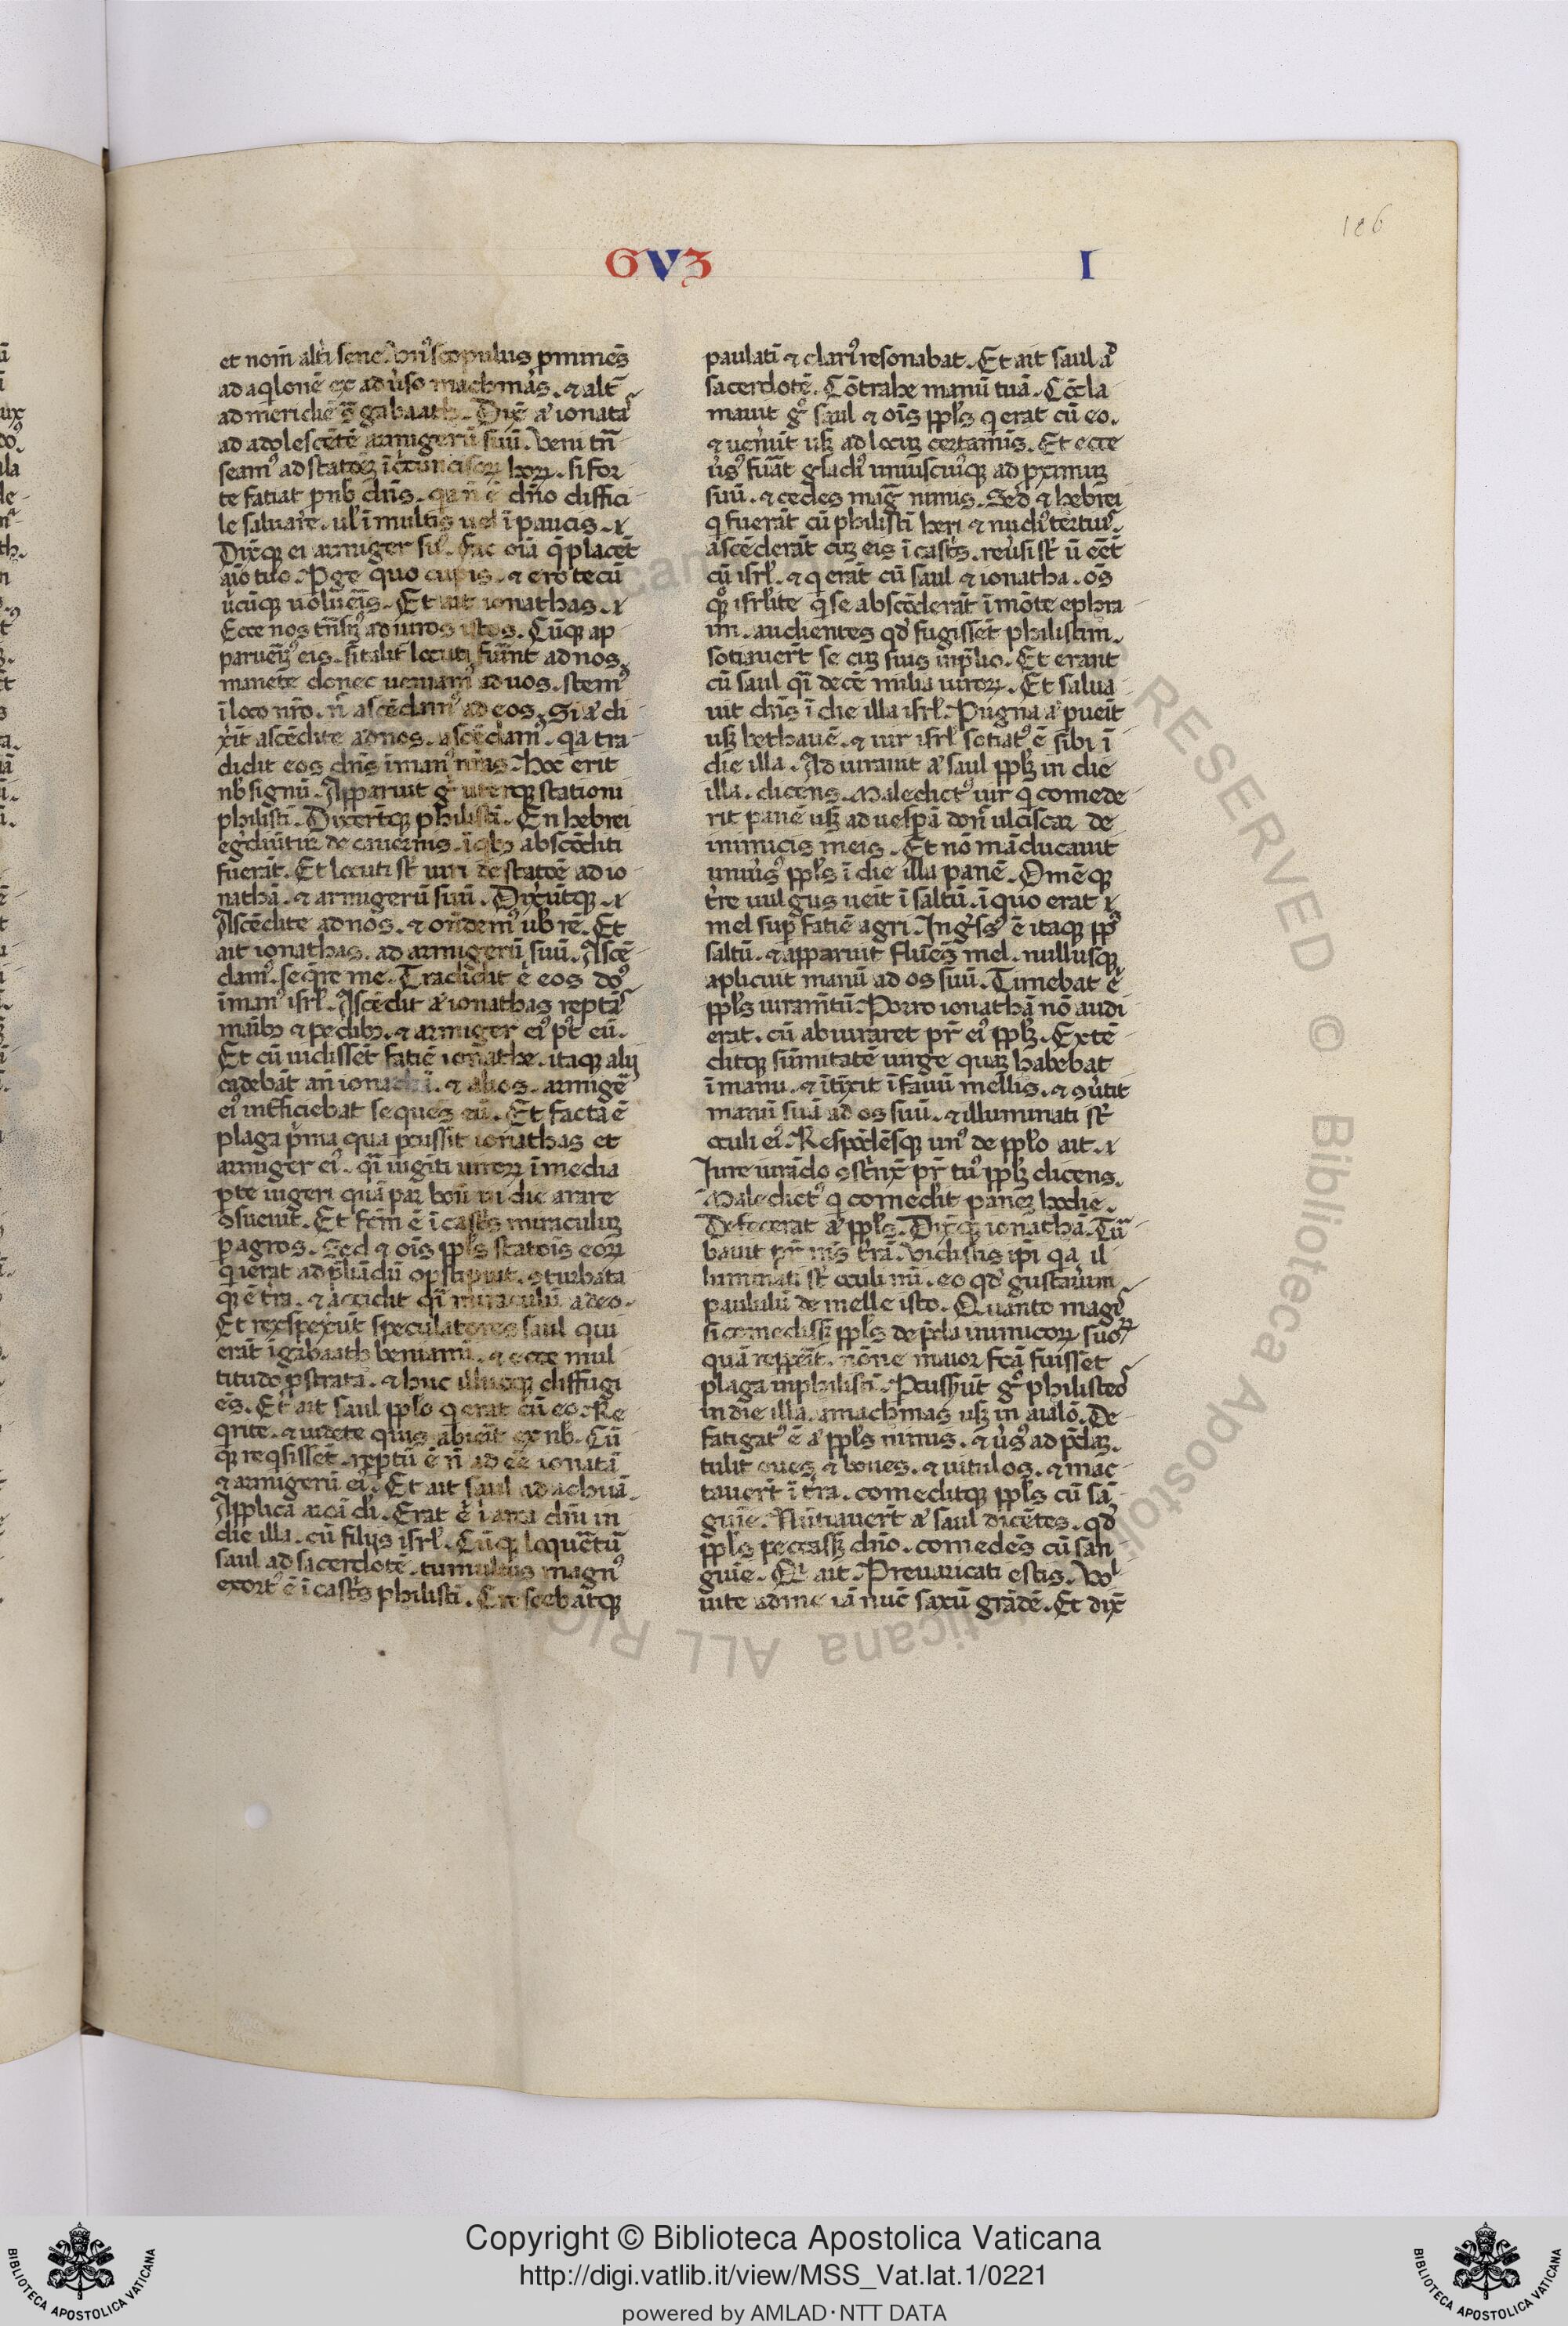 186
GVZ I
et nom̄ altȋ sene. Vnꝰ scopulus p̄mines̄
ad aq̇lonē ex adũso machmãs. ⁊ alt̄
ad meridiē ɔ̄ gabaath. Dix̄ aͣ ionatas
ad adolescētē armigerū suū. Veni tn̄
seamꝰ ad statōꝫ ı̄c̓cuncisoꝝ hoꝝ. si for
te fatiat p nb̄ dn̄s. qa n̄ ē dn̄o diffici
le saluare. ul̓ ı̄ multis uel ı̄ paucis.
Dix̓qꝫ ei armiger suꝰ. fac oīa q̄ placēt
aīo tuo. Pge quo cupis. ⁊ ero tecū
ũcūqꝫ uolũis. Et ait ionathas.
Ecce nos tn̄simꝰ ad uiros istos. Cūqꝫ ap
paruẽimꝰ eis. si talit̄ locuti fuĩnt ad nos.
manete donec ueniamꝰ ad uos. stemꝰ
ı̄ loco nr̄o. n̄ ascēdamꝰ ad eos. Si aͣ di
xĩt ascēdite ad nos. ascēdamꝰ. qa tra
didit eos dn̄s ı̄ manꝰ nr̄as. Hoc erit
nb̄ signū. Apparuit g̊ uterqꝫ stationi
philistı̄. Dixertqꝫ philistı̄. En hebrei
eg̓diūtur de cauernis. ı̄ qbꝫ abscōditi
fuerāt. Et locuti sꝉ uiri de statōē ad io
nathā. ⁊ armigerū suū. Dixũtqꝫ.
Ascēdite ad nos. ⁊ on̄demꝰ uob̄ rē. Et
ait ionathas. ad armigerū suū. Ascē
damꝰ. seqre me. Tradidit ē̓ eos dn̄s
ı̄ manꝰ isrl̓. Ascēdit aͣ ionathas reptās
manibꝫ ⁊ pedibꝫ. ⁊ armiger eiꝰ pꝰt eū.
Et cū uidissēt fatiē ionathe. itaqꝫ alij
cadebāt an̄ ionathā. ⁊ alios. armigē
eiꝰ int̓ficiebat sequēs eū. Et facta ē
plaga p̓ma qua pcussit ionathas et
armiger eiꝰ. q̄i uigīti uiroꝝ ı̄ media
pte iugeri quā par boū ı̄ die arare
ɔsueuit. Et fc̄m ē ı̄ castris miraculuꝫ
p agros. Sed ⁊ oīs ppl̓s statōis eoꝝ
q̓ ierat ad p̄dādū opstipuit. ɔturbata
qꝫ ē tr̄a. ⁊ accidit q̄i miraculū a deo.
Et rexspexũt speculatores saul qui
erāt ı̄ gabaath beniamī. ⁊ ecce mul
titudo pstrata. ⁊ huc illucqꝫ diffugi
ēs. Et ait saul pplo̓ q̓ erat cū eo. Re
qrite. ⁊ uidete quis abieĩt ex nb̄. Cū
qꝫ reqsissēt. reptū ē n̄ adeē̄ ionatā
⁊ armigerū eiꝰ. Et ait saul ad achiā.
Applica arcā dı̄. Erat ē̓ ı̄ arca dn̄i in
die illa. cū filijs isrl̓. Cūqꝫ loq̄retū
saul ad sacerdotē. tumultus magnꝰ
exortꝰ ē ı̄ castris philistı̄. Crescebatqꝫ
paulatī ⁊ clariꝰ resonabat. Et ait saul ad
sacerdotē. Cōtrahe manū tuā. Cōcla
mauit g̊ saul ⁊ oīs ppl̓s q̓ erat cū eo.
⁊ uen̄ūt usꝫ ad locuꝫ certamīs. Et ecce
ũsꝰ fũat gladiꝰ uniuscuiꝰqꝫ ad pximuꝫ
suū. ⁊ cedes mag̃ nimis. Sed ⁊ hebrei
q̓ fuerāt cū philistī heri ⁊ nudiꝰ tertius.
ascēderāt cuꝫ eis ı̄ castris. reũsi sꝉ ū eēt
cū isrl̓. ⁊ q̓ erāt cū saul ⁊ ionatha. oēs
qꝫ isrl̓ite q̓ se abscōderāt ı̄ mōte ephra
im. audientes qd̓ fugissēt philistim.
sotiauert̄ se cuꝫ suis ı̄ p̄lio. Et erant
cū saul q̄i decē milia uiroꝝ. Et salua
uit dn̄s ı̄ die illa isrl̓. Pugna aͣ pueīt
usꝫ bethauē. ⁊ uir isrl̓ sotiatꝰ ē sibi ı̄
die illa. Adiurauit aͣ saul pplꝫ in die
illa. dicens. Maledictꝰ uir q̓ comede
rit panē usꝫ ad uesp̄ā don̄ ulciscar de
inimicis meis. Et nō māducauit
uniũsꝰ ppl̓s ı̄ die illa panē. Omēqꝫ
tr̄e uulgus ueīt ı̄ saltū. ı̄ quo erat
mel sup fatiē agri. Ing̓ssꝰ ē itaqꝫ ppls̓
saltū. ⁊ apparuit fluēs mel. nullusqꝫ
aplicuit manū ad os suū. Timebat ē̓
ppl̓s iuramt̄ū. Porro ionathā nō audi
erat. cū abiuraret pr̄ eiꝰ pplꝫ. Extē
ditqꝫ sūmitatē uirge quaꝫ habebat
ı̄ manu. ⁊ ı̄tı̄xit ı̄ fauū mellis. ⁊ ɔũtit
manū suā ad os suū. ⁊ illuminati sꝉ
oculi eiꝰ. Respōdēsqꝫ unꝰ de pplo̓ ait.
Iure iurādo ɔstr̄ix̄ pr̄ tuꝰ pplꝫ dicens.
Maledictꝰ q̓ comedĩt paneꝫ hodie.
Defecerat aͣ ppl̓s. Dix̓qꝫ ionathā. Tur
bauit pr̄ m̄s tr̄ā. Vidistis ip̄i qa il
luminati sꝉ oculi m̄i. eo qd̓ gustauim
paululū de melle isto. Quanto magis
si comedissꝫ ppl̓s de p̄da inimicoꝝ suoꝝ
quā reppeīt. nōne maior fcā̄ fuisset
plaga in philistı̄. Pcusseũt g̊ philisteos
in die illa. a machmas usꝫ in aialō. De
fatigatꝰ ē aͣ ppl̓s nimis. ⁊ ũsꝰ ad p̄daꝫ.
tulit oues ⁊ boues. ⁊ uitulos. ⁊ mac
tauert̄ ı̄ tr̄a. comeditqꝫ ppl̓s cū sā
guīe. Nūtiauert̄ aͣ saul dicētes. qd̓
ppl̓s peccassꝫ dn̄o. comedēs cū san
guīe. Qi ait. Preuaricati estis. Vol
uite ad me iā nūc saxū grādē. Et dix̄
Copyright © Biblioteca Apostolica Vaticana
http://digi.vatlib.it/view/MSS_Vat.lat.1/0221
powered by AMLAD·NTT DATA
BIBLIOTECA APOSTOLICA VATICANA
BIBLIOTECA APOSTOLICA VATICANA